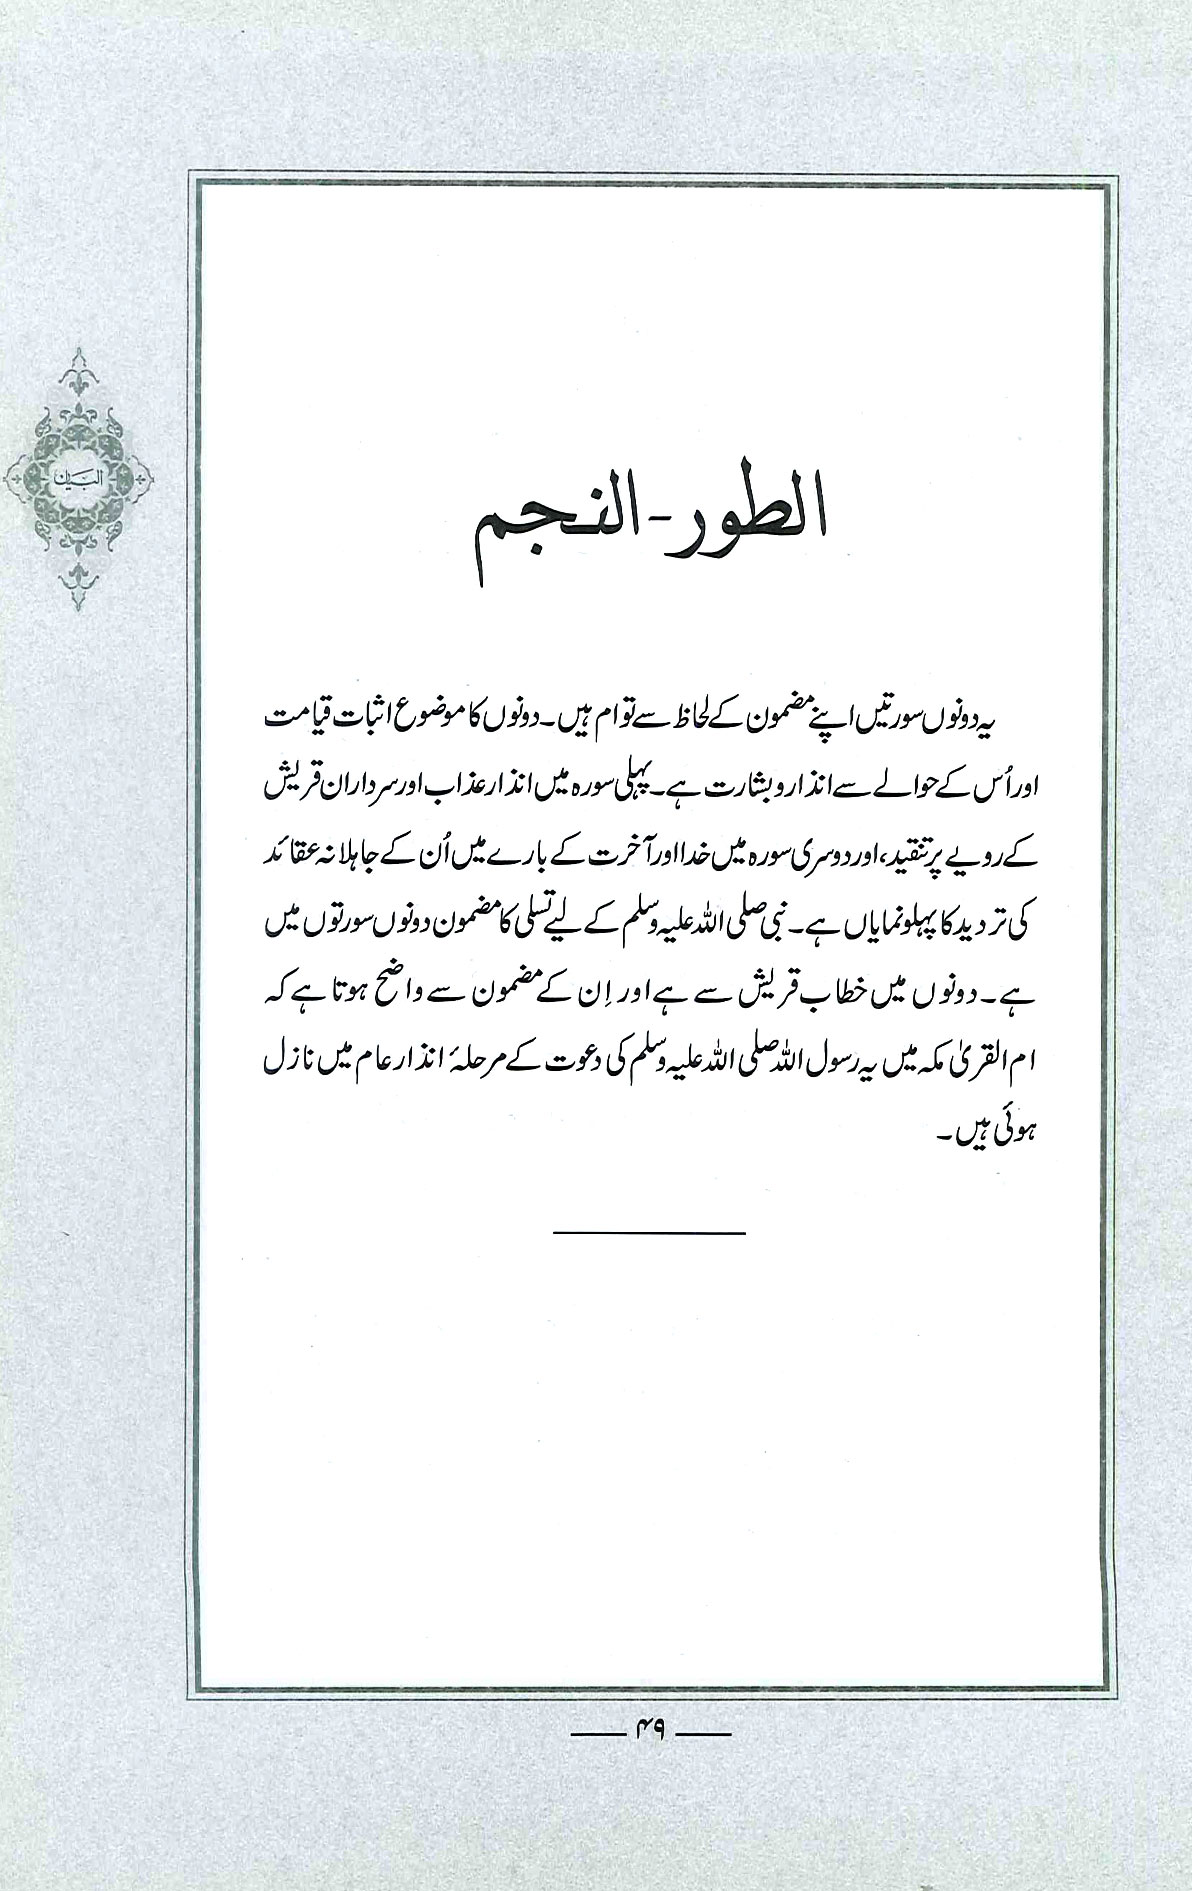 البیان
الطور - النجم
یہ دونوں سورتیں اپنے مضمون کے لحاظ سے توام ہیں۔ دونوں کا موضوع اثبات قیامت
اور اُس کے حوالے سے انذار و بشارت ہے۔ پہلی سورہ میں انذار عذاب اور سرداران قریش
کے رویے پر تنقید، اور دوسری سورہ میں خدا اور آخرت کے بارے میں اُن کے جاہلانہ عقائد
کی تردید کا پہلو نمایاں ہے۔ نبی صلی اللہ علیہ وسلم کے لیے تسلی کا مضمون دونوں سورتوں میں
ہے۔ دونوں میں خطاب قریش سے ہے اور اِن کے مضمون سے واضح ہوتا ہے کہ
ام القریٰ مکہ میں یہ رسول اللہ صلی اللہ علیہ وسلم کی دعوت کے مرحلۂ انذار عام میں نازل
ہوئی ہیں۔
۴۹